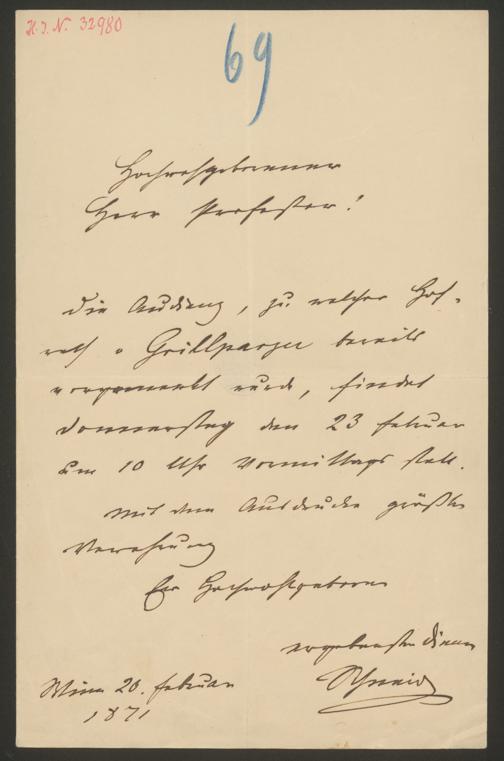 H.I.N. 32980
69
Hochwohlgeborener
Herr Professor!
Die Audienz, zu welcher Hof-
rath v Grillparzer bereits
vorgemerkt wurde, findet
Donnerstag den 23 Februar
um 10 Uhr Vormittags statt.
Mit dem Ausdrucke größter
Verehrung
Euer Hochwohlgeboren
ergebenster Diener
Wien 20. Februar
1871